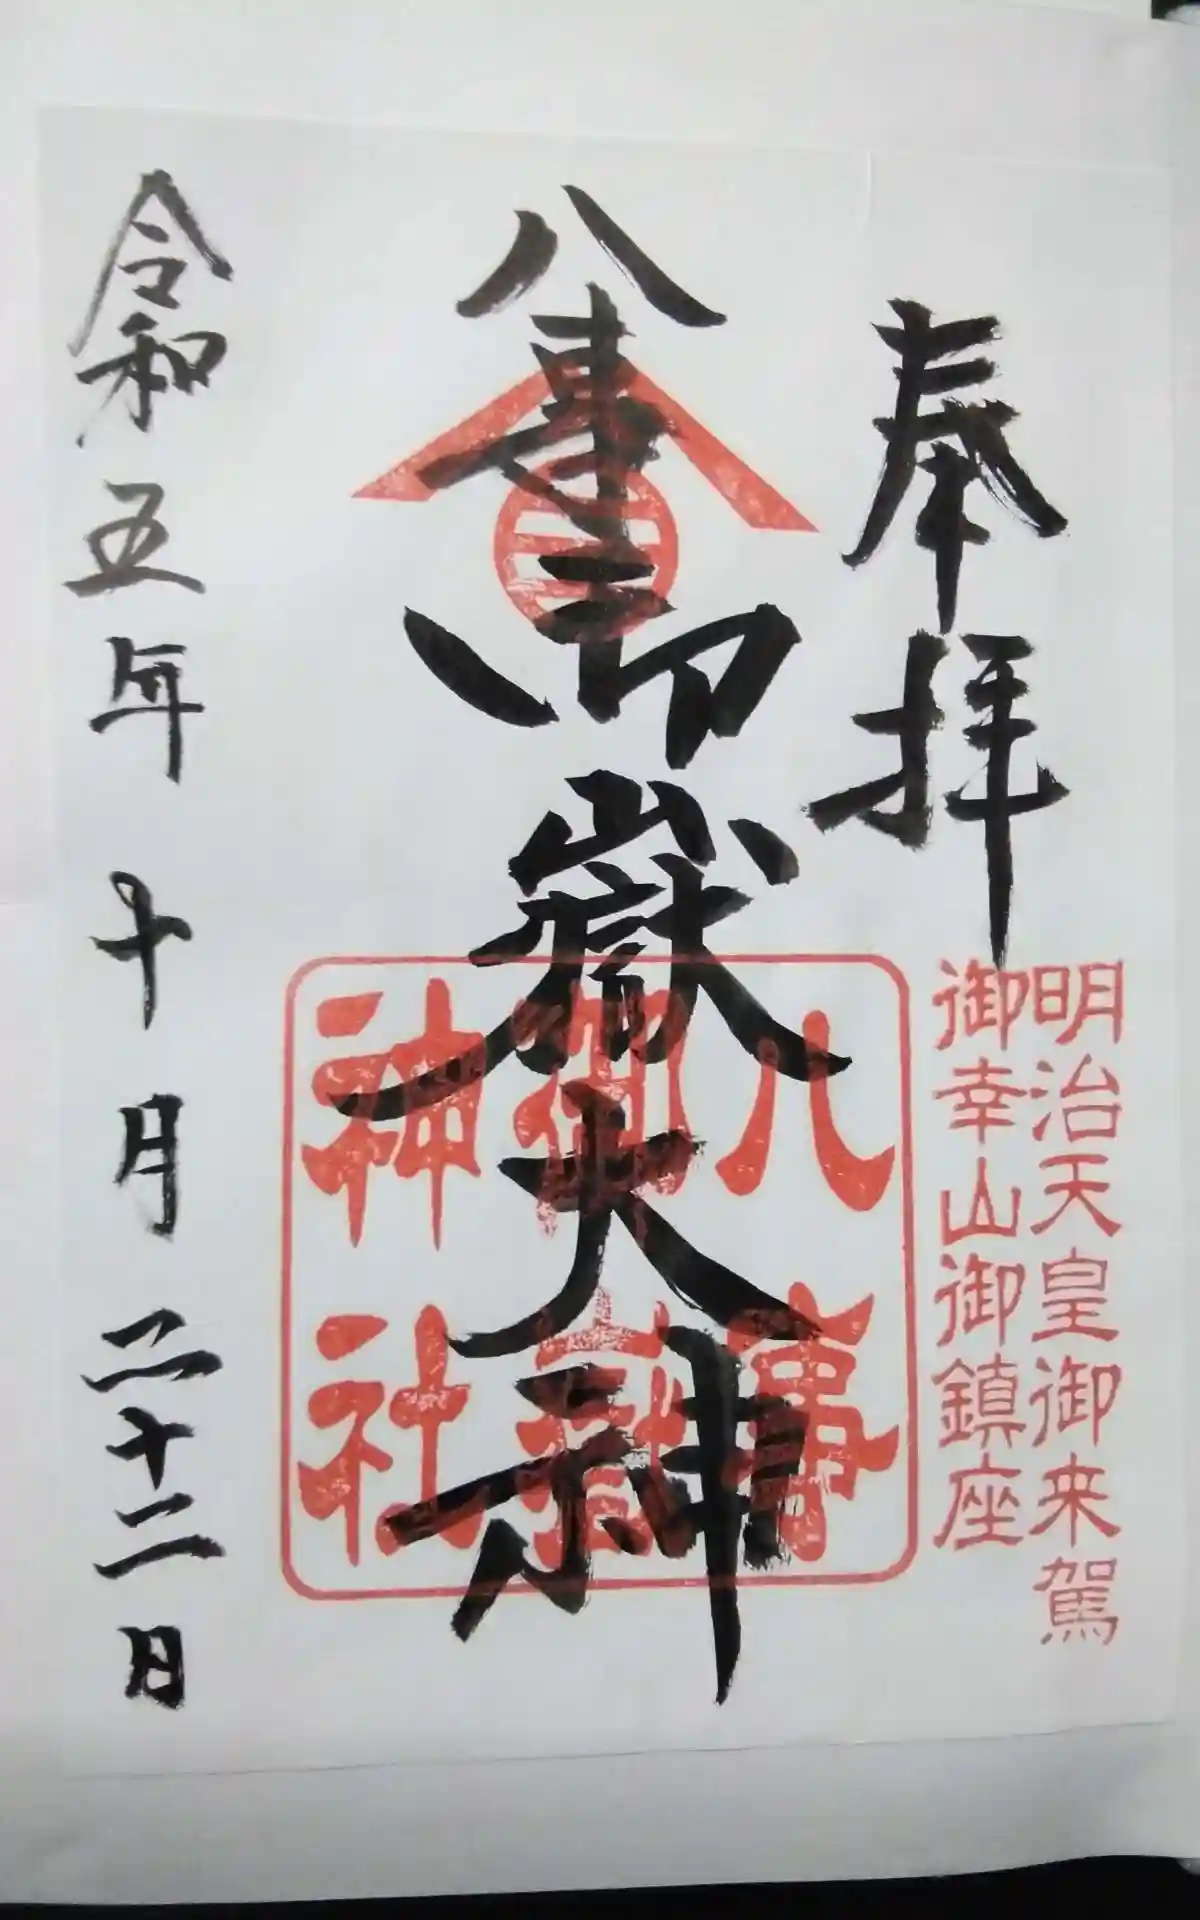 奉拝
明治天皇御来駕
御幸山御鎮座
八事御嶽大神
三
八事
御嶽
神社
令和五年十月二十二日